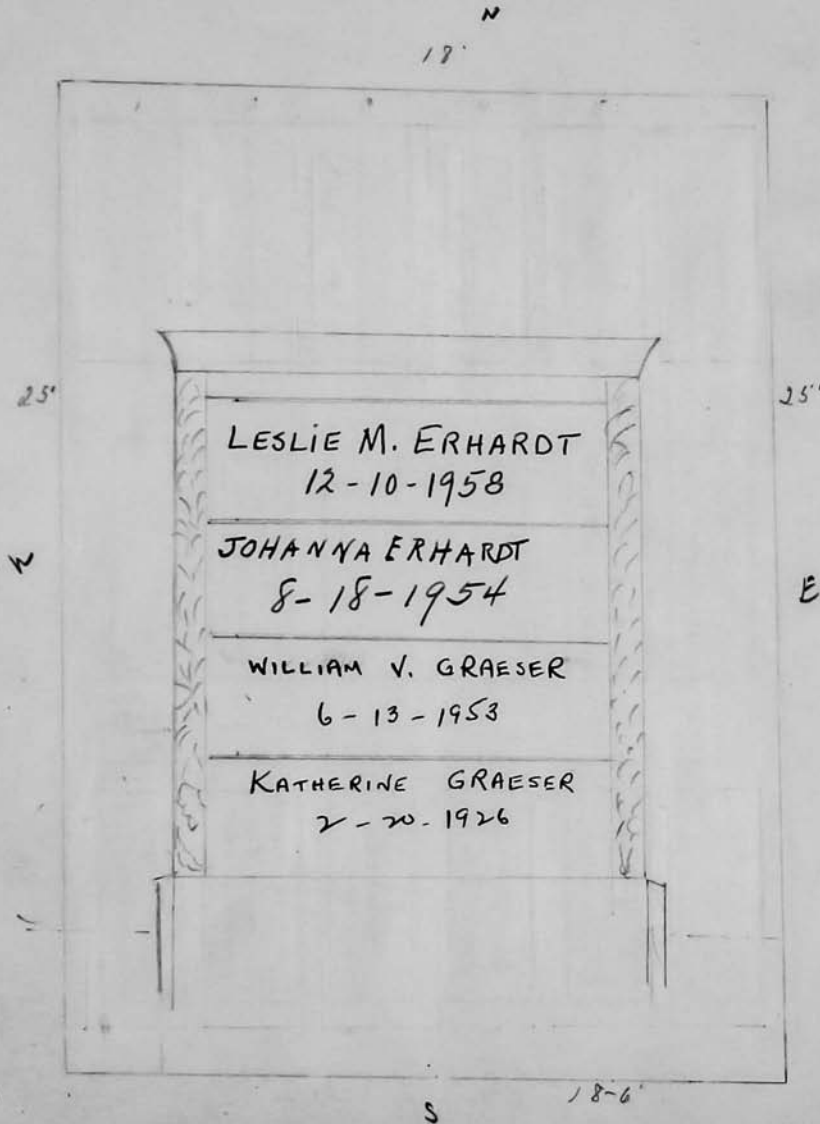 N
18'
25'
25'
LESLIE M. ERHARDT
12-10-1958
JOHANNA ERHARDT
8-18-1954
W
E
WILLIAM V. GRAESER
6-13-1953
KATHERINE GRAESER
2-20-1926
18-6'
S